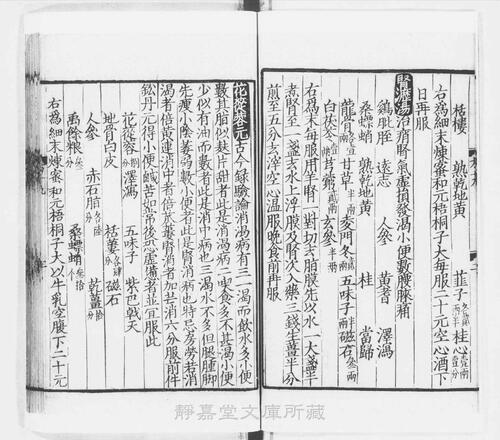 栝樓 熟乾地黃 韮子 桂心
右為細末煉蜜和元梧桐子大每服二十元空心酒下
日再服
腎瀝湯治腎氣虛損發渴小便數腰膝痛
鷄肶胵 遠志 人參 黃耆 澤瀉
桑螵蛸 熟乾地黃 桂 當歸
龍骨 甘草 麥門冬 五味子 磁石
白茯苓 玄參
右為末每服用羊腎一對切去脂膜先以水一大盞半
煮腎至一盞去水上浮脂及腎次入藥三錢生薑半分
煎至五分去滓空心溫服晚食前再服
花蓯蓉元古今錄驗論消渴病有三一渴而飲水多小便
數其脂似麩片甜者此是消渴病二喫食多不甚渴小便
少似有油而數者此是消中病也三渴水不多但腿腫脚
先瘦小陰萎弱數小便者此是腎消病也特忌房勞若消
渴者倍黃連消中者倍栝蔞腎消者加芒消六分服前件
鉛丹元得小便鹹苦如常後恐虛憊者並宜服此
花蓯蓉 澤瀉 五味子 紫巴戟天
地骨白皮 栝蔞 磁石
人參 赤石脂 乾薑
禹餘粮 桑螵蛸
右為細末煉蜜和元梧桐子大以牛乳空腹下二十元
靜嘉堂文庫所藏